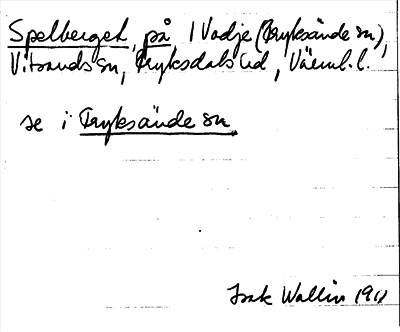 Spelberget, på 1 Vadje (Fryksände sn),
Vitsands sn, Fryksdals hd, Värml. l.
se i Fryksände sn.
Isak Wallin 1911